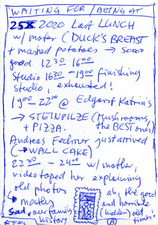 WAITING FOR / BEING AT
25 2020 Last LUNCH
w/ mother (DUCK'S BREAST
+ mashed potatoes → sooo
good 12:30 1600
Studio 1620 - 1900 Finishing
studio, exhausted!
1900 - 22 @ Edgar & Katrin's
→ STEINPILZE (Mushrooms,
+ PIZZA. the BEST ones)
Andreas just arrived
(→ WALL CAKE)
2230 - 2400 w/ mother,
videotaped her explaining
old photos
→ mostly
sad, our family
history
ah, the good
and horrible
(hidden) old
times